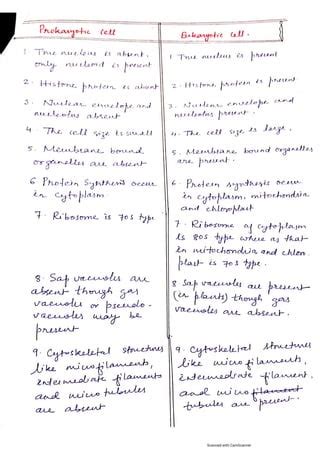 Prokaryotic cell
1 True nucleus is absent.
only nucleoid is present
2. Histone protein is absent
3. Nuclear envelope and
nucleolus absent
4. The cell size is small
5. Membrane bound
organelles are absent
6 Protein Synthesis occur
in cytoplasm
7. Ribosome is 70s type
8. Sap vacuoles are
absent though gas
vacuoles or pseudo-
vacuoles may be
present
9. Cytoskeletal structures
like microfilaments,
intermediate filaments
and microtubules
are absent
Eukaryotic cell.
1 True nucleus is present
2. Histone protein is present
3. Nuclear envelope and
nucleolus present.
4. The cell size is large.
5. Membrane bound organelles
are present.
6. Protein synthesis occur
in cytoplasm, mitochondria
and chloroplast
7. Ribosome of cytoplasm
is 80s type where as that
in mitochondria and chloro
plast is 70s type.
8 Sap vacuoles are present
(in plants) though gas
vacuoles are absent.
9. Cytoskeletal structures
like microfilaments,
intermediate filament.
and micro filament
tubules are present.
Scanned with CamScanner